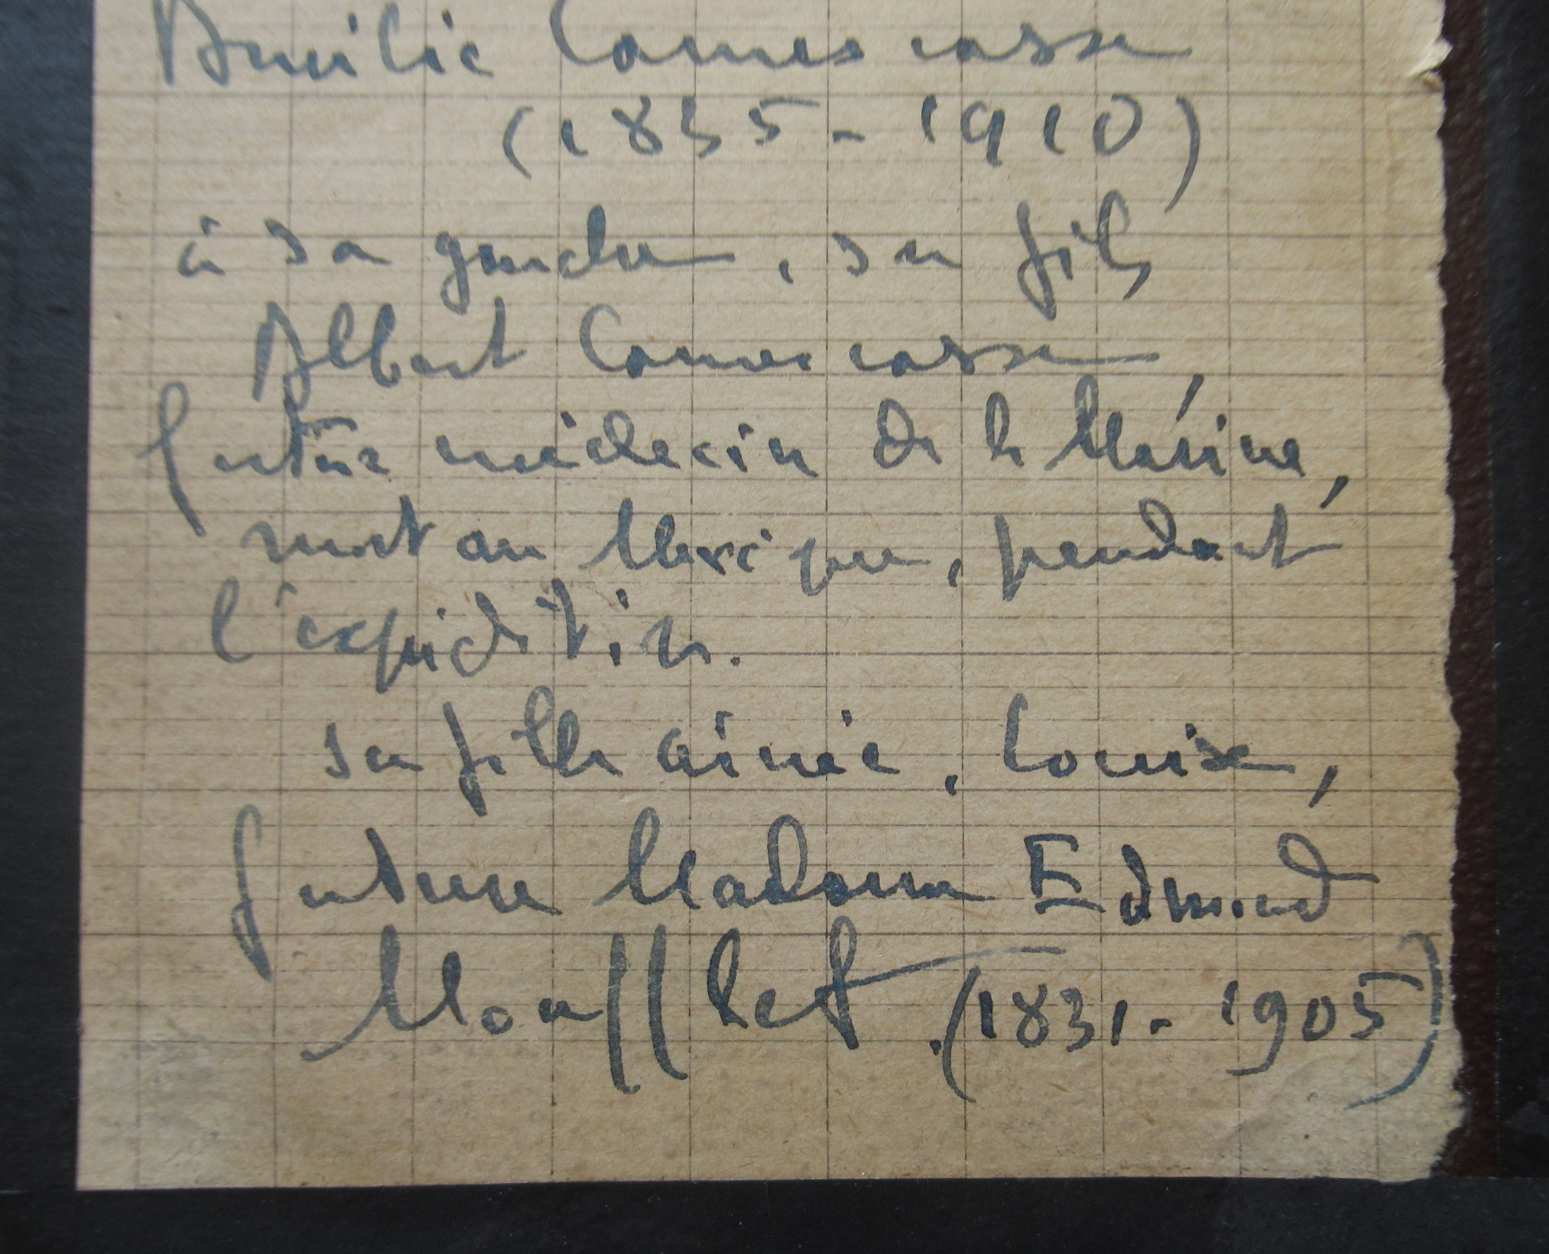 Amélie Camescasse
(1835-1910)
à sa gauche, son fils
Albert Camescasse,
futur médecin de la Marine,
mort au Mexique, pendant
l'expédition.
sa fille aînée, Louise,
future Madame Edmond
Moufflet (1831-1905)